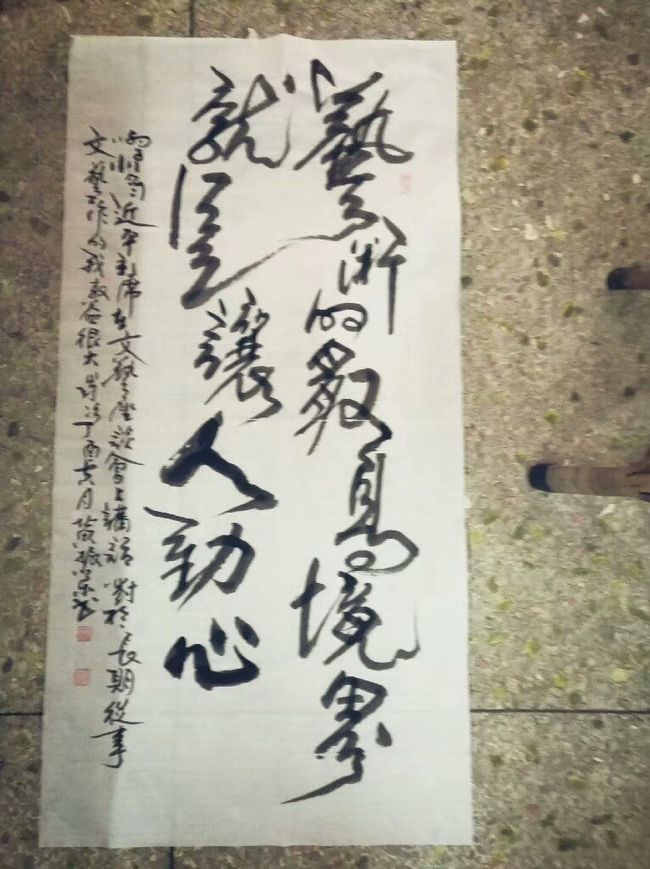 藝術的最高境界
就是讓人動心
習近平主席在文藝座談會上講話對於長期從事
文藝工作的我教益很大歲次丁酉月黃振